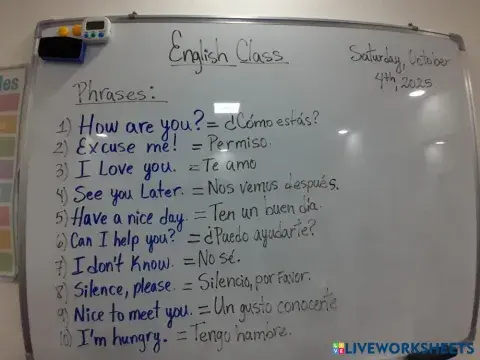 English Class
Saturday, October
4th, 2025
Phrases:
1) How are you? = ¿Cómo estás?
2) Excuse me! = Permiso.
3) I Love you. = Te amo
4) See you Later. = Nos vemos después.
5) Have a nice day. = Ten un buen día.
6) Can I help you? = ¿Puedo ayudarte?
7) I don't know. = No sé.
8) Silence, please. = Silencio, por favor.
9) Nice to meet you. = Un gusto conocerte
10) I'm hungry. = Tengo hambre.
LIVEWORKSHEETS